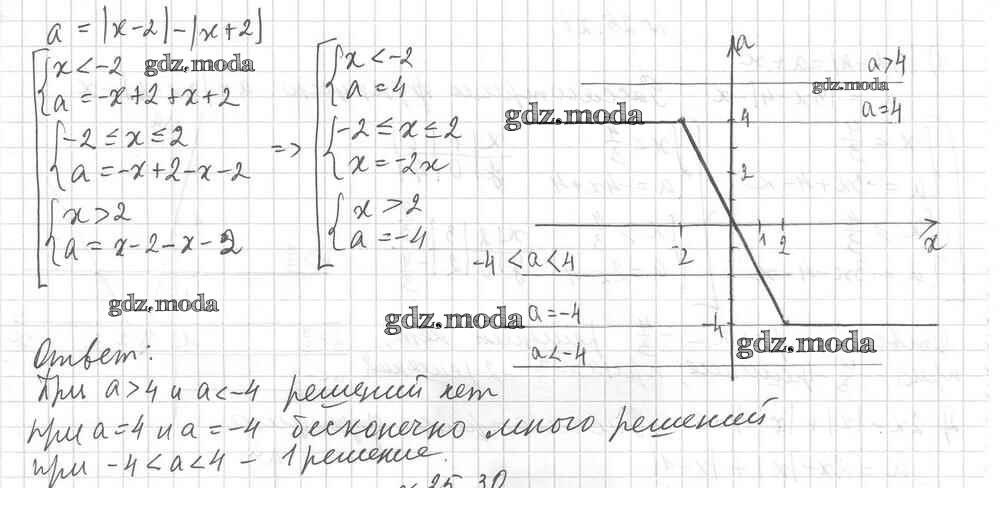 a = |x-2|-|x+2|
x < -2
a = -x+2+x+2
-2 ≤ x ≤ 2
a = -x+2-x-2
x > 2
a = x-2-x-2
=>
x < -2
a = 4
-2 ≤ x ≤ 2
x = -2x
x > 2
a = -4
gdz.moda
gdz.moda
gdz.moda
gdz.moda
gdz.moda
gdz.moda
a
a>4
a=4
4
2
-2
1
2
x
-4 < a < 4
a = -4
-4
a < -4
Ответ:
При a > 4 и a < -4 решений нет
при a = 4 и a = -4 бесконечно много решений
при -4 < a < 4 - 1 решение.